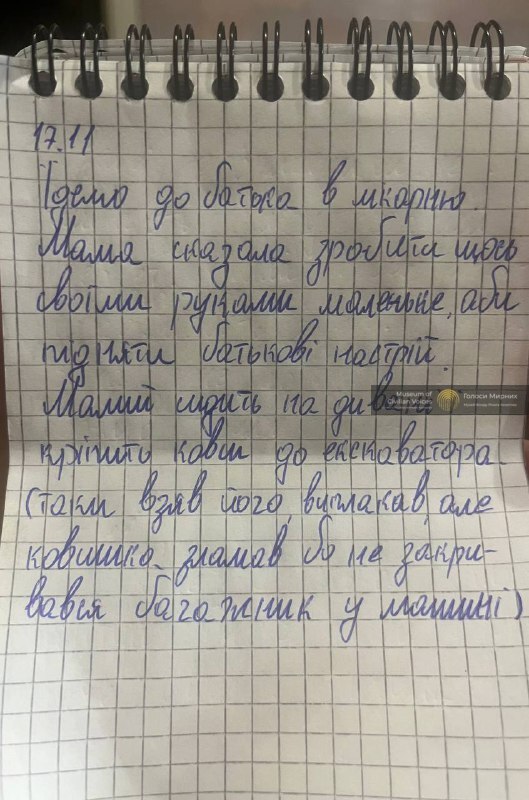 17.11
Їдемо до батька в лікарню.
Мама сказала зробити щось
своїми руками маленьке, аби
підняти батькові настрій.
Малий сидить на дивані
кріпить ковш до екскаватора.
(таки взяв його, виплакав, але
ковшика зламав бо не закри-
вався багажник у машині)
Museum of
Civilian Voices
Голоси Мирних